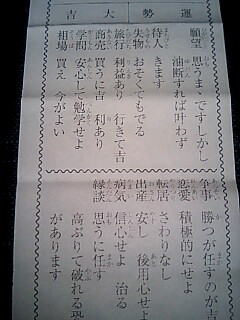 運勢大吉
願望 思うまゝですしかし
油断すれば叶わず
待人 きます
失物 おそくもでる
旅行 利益あり 行きて吉
商売 買うに吉 利あり
学問 安心して勉学せよ
相場 買え 今がよい
争事 勝つが任すのが吉
恋愛 積極的にせよ
転居 さわりなし
出産 安し 後用心せよ
病気 信心せよ 治る
縁談 思うに任す
高ぶりて破れる恐
があります